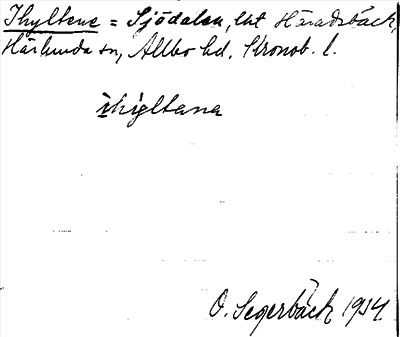 Ihyltene = Sjödalen, lht Häradsbäck,
Härlunda sn, Allbo hd. Kronob. l.
ìhìgltana
O. Segerbäck 1934.